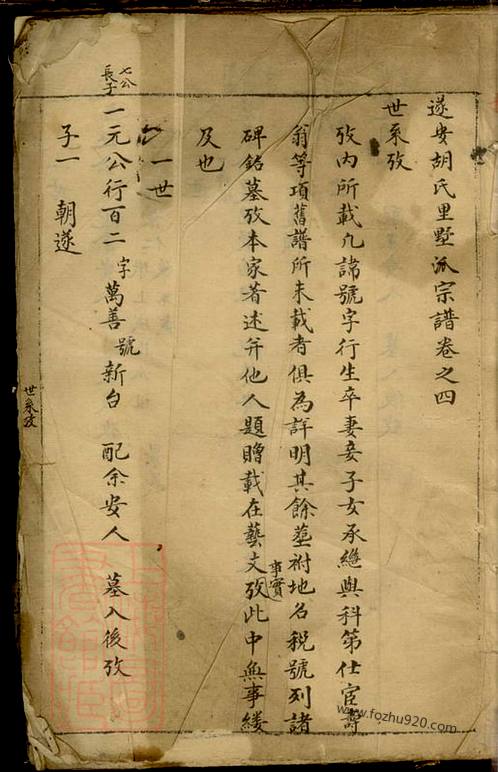 遂安胡氏里墅派宗譜卷之四
世系攷
攷内所載凡諱號字行生卒妻妾子女承繼與科第仕宦壽
翁等項舊譜所未載者俱為詳明其餘塟祔地名税號列諸
碑銘墓攷本家著述并他人題贈事實載在藝文攷此中無事縷
及也
一世
七公長子一元公行百二字萬善號新台 配余安人 墓入後攷
子一 朝遂
世系攷
www.fozhu920.com